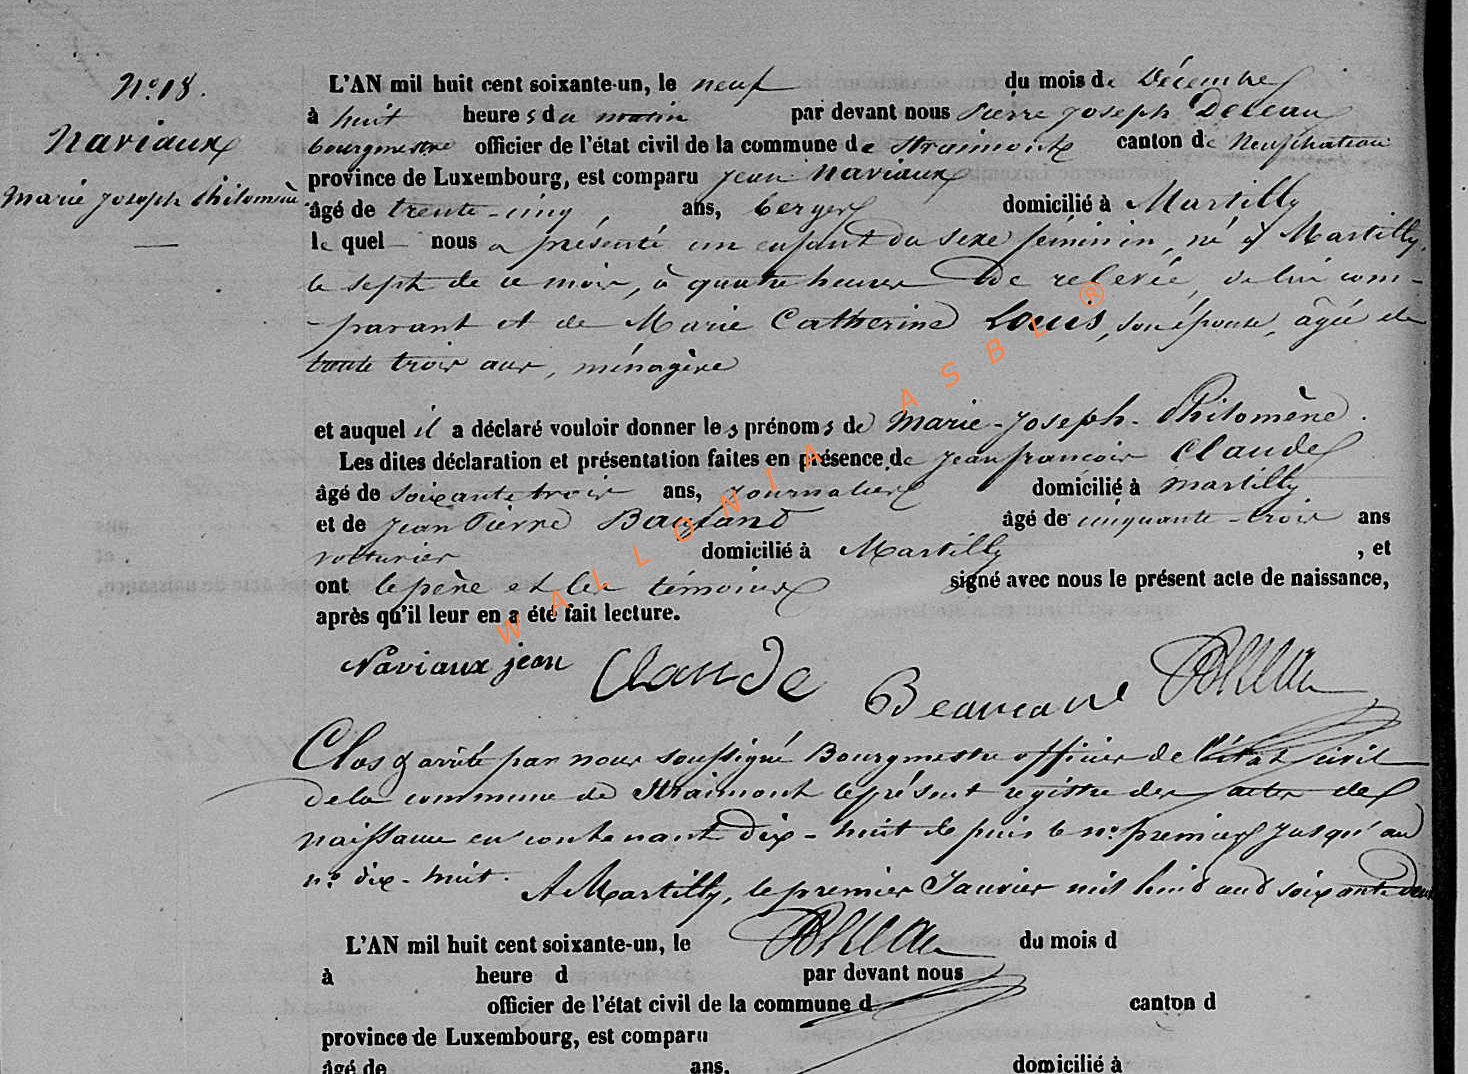 N° 18.
Naviaux
Marie Joseph Philomène
L'AN mil huit cent soixante-un, le neuf du mois de Décembre
à huit heures du matin par devant nous Pierre Joseph Deleau
bourgmestre officier de l'état civil de la commune de Straimont canton de Neufchateau
province de Luxembourg, est comparu Jean Naviaux
âgé de trente-cinq, ans, berger domicilié à Martilly
lequel nous a présenté un enfant du sexe féminin, né à Martilly,
le sept de ce mois, à quatre heures de relevée, de lui com-
-parant et de Marie Catherine Louis, son épouse, âgée de
trente trois ans, ménagère
et auquel il a déclaré vouloir donner les prénoms de Marie-Joseph-Philomène.
Les dites déclaration et présentation faites en présence de Jean françois Claude
âgé de soixante trois ans, journalier domicilié à Martilly
et de Jean Pierre âgé de cinquante-trois ans
voiturier domicilié à Martilly, et
ont le père et les témoins signé avec nous le présent acte de naissance,
après qu'il leur en a été fait lecture.
Naviaux jean Claude
Clos & arrêté par nous soussigné Bourgmestre officier de l'état civil
de la commune de Straimont le présent registre des actes de
naissance en contenant dix-huit depuis le n° premier jusqu'au
n° dix-huit. A Martilly, le premier Janvier mil huit cent soixante deux
L'AN mil huit cent soixante-un, le du mois d
à heure d par devant nous
officier de l'état civil de la commune d canton d
province de Luxembourg, est comparu
âgé de ans, domicilié à
WALLONIA ASBL ®